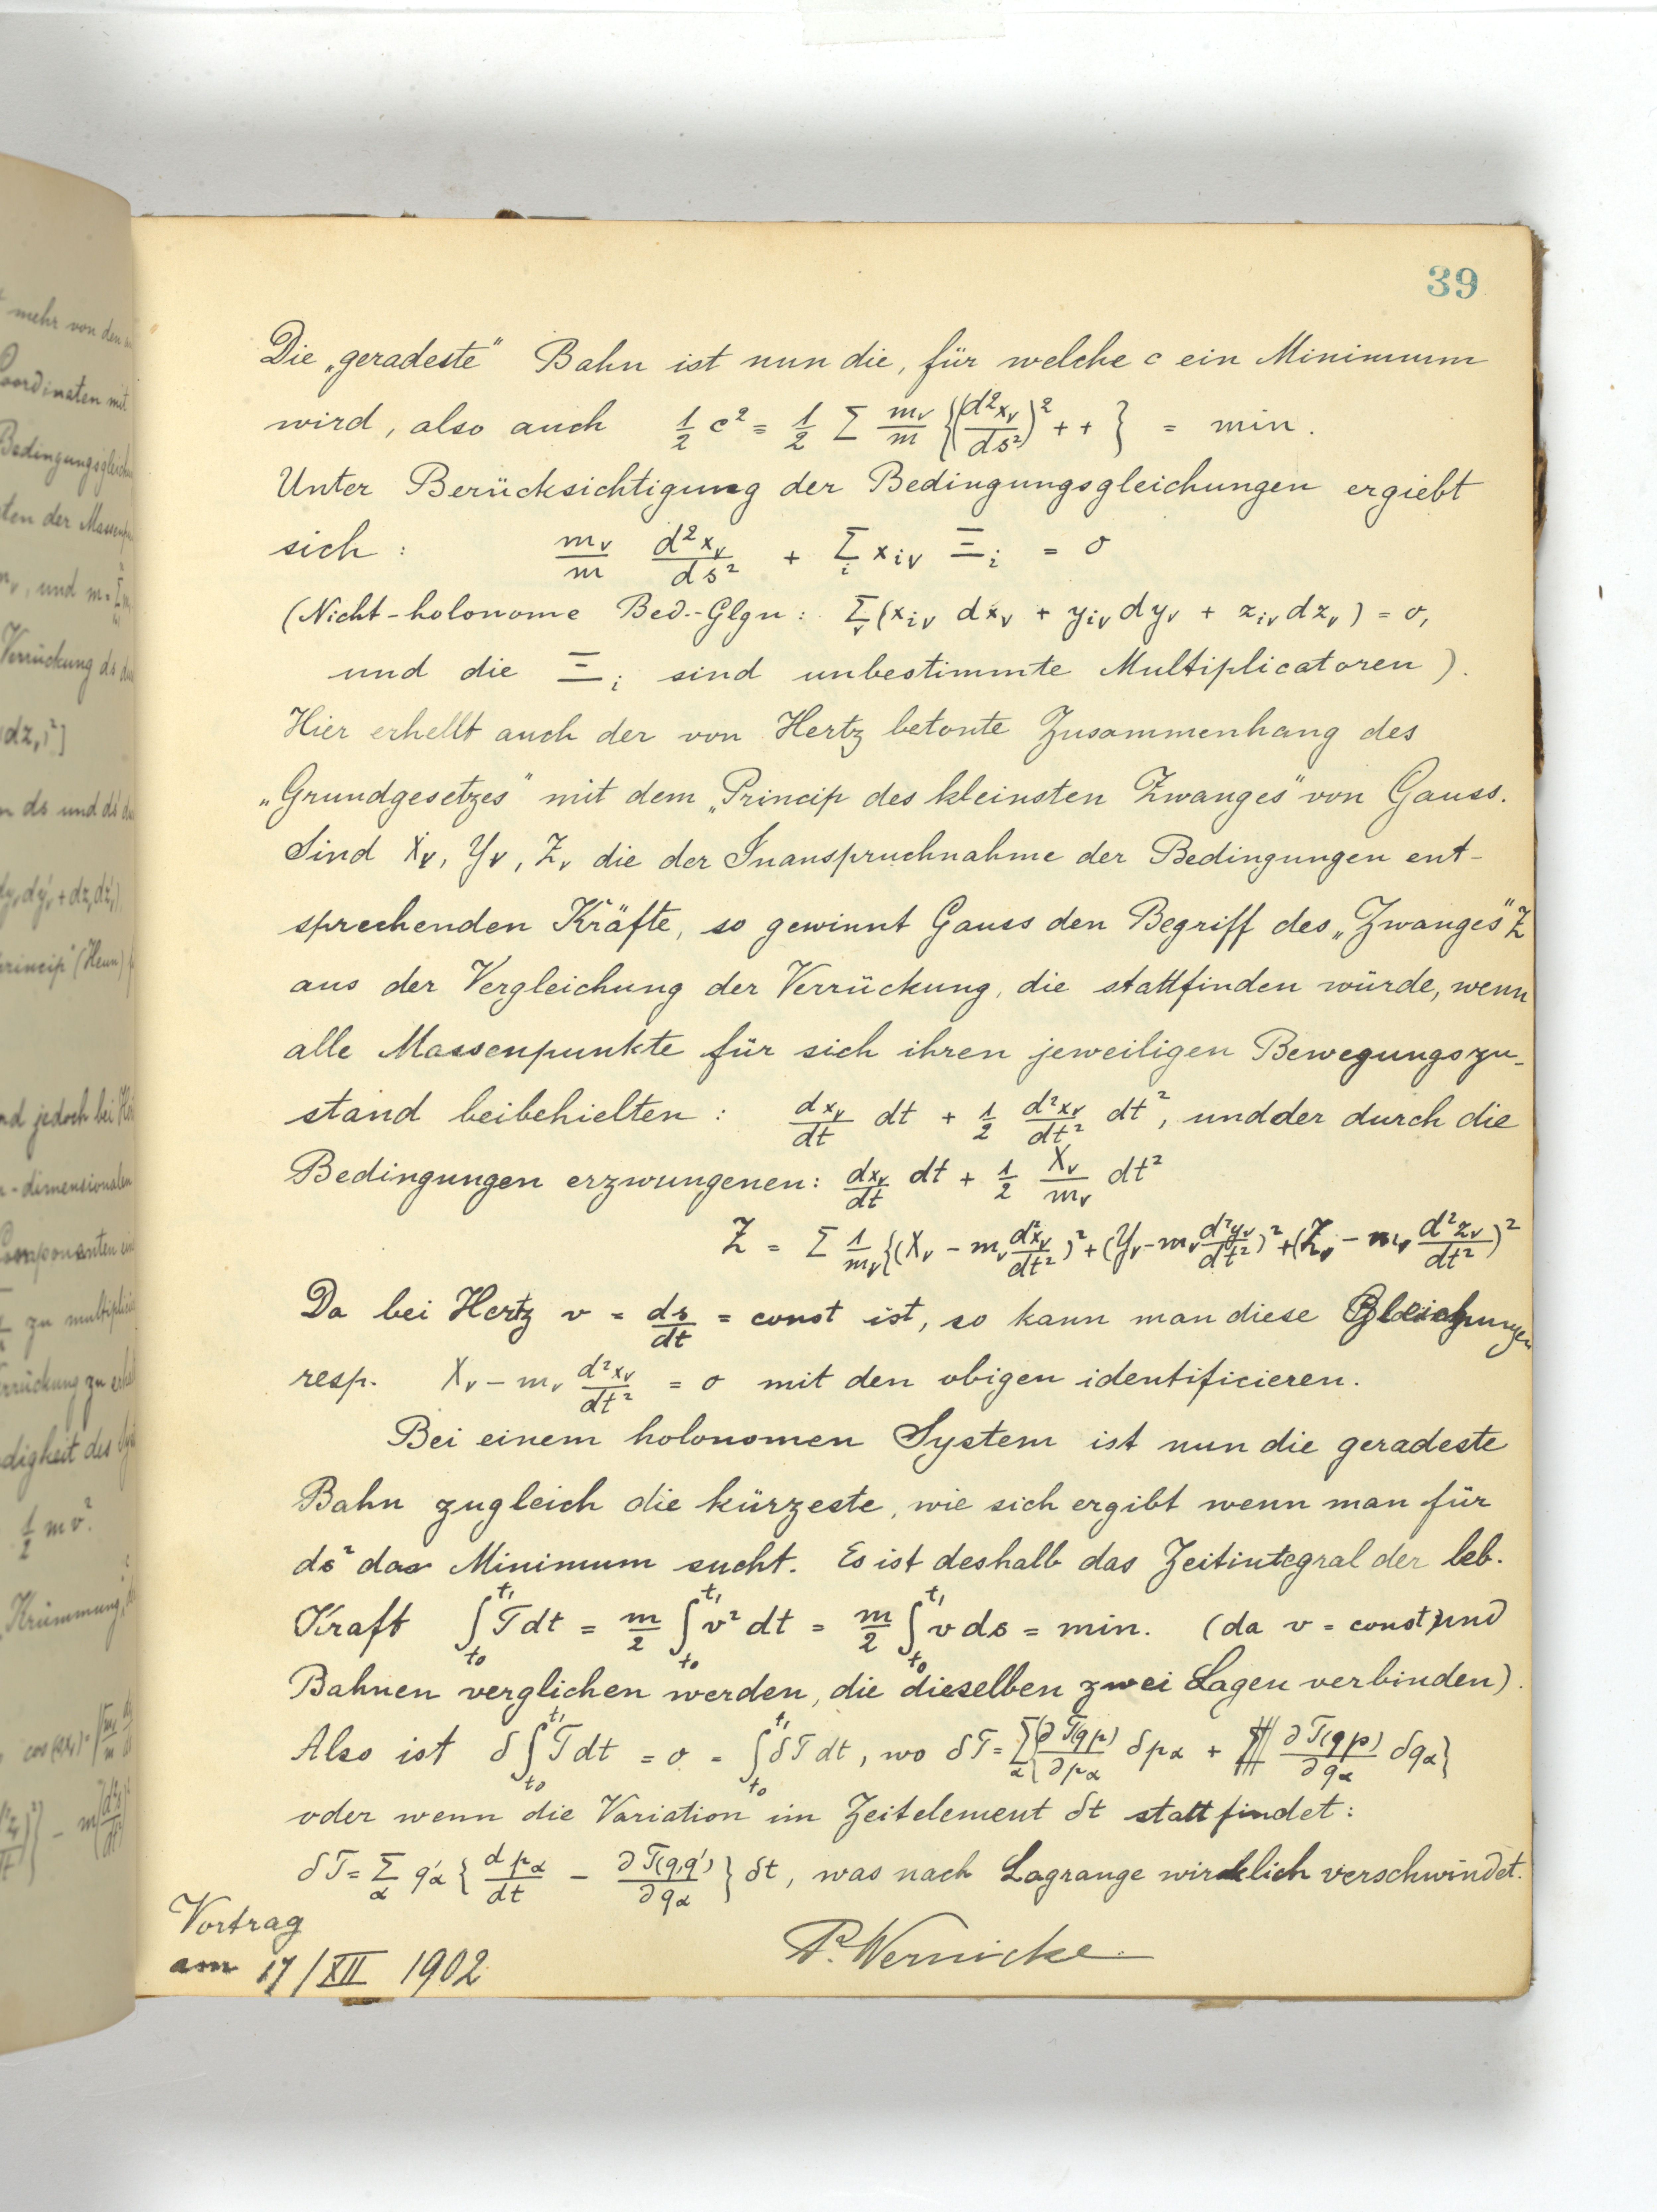 39
Die „geradeste“ Bahn ist nun die, für welche c ein Minimum
wird, also auch ½ c² = ½ Σ m_ν/m {(d²x_ν/ds²)² + + } = min.
Unter Berücksichtigung der Bedingungsgleichungen ergiebt
sich: m_ν/m d²x_ν/ds² + Σ_i x_iν Ξ_i = 0
(Nicht-holonome Bed.-Glgn: Σ_ν (x_iν dx_ν + y_iν dy_ν + z_iν dz_ν) = 0,
und die Ξ_i sind unbestimmte Multiplicatoren).
Hier erhellt auch der von Hertz betonte Zusammenhang des
„Grundgesetzes“ mit dem „Princip des kleinsten Zwanges“ von Gauss.
Sind X_ν, Y_ν, Z_ν die der Inanspruchnahme der Bedingungen ent-
sprechenden Kräfte, so gewinnt Gauss den Begriff des „Zwanges“ Z
aus der Vergleichung der Verrückung, die stattfinden würde, wenn
alle Massenpunkte für sich ihren jeweiligen Bewegungszu-
stand beibehielten: dx_ν/dt dt + ½ d²x_ν/dt² dt², und der durch die
Bedingungen erzwungenen: dx_ν/dt dt + ½ X_ν/m_ν dt²
Z = Σ 1/m_ν {(X_ν - m_ν d²x_ν/dt²)² + (Y_ν - m_ν d²y_ν/dt²)² + (Z_ν - m_ν d²z_ν/dt²)²
Da bei Hertz v = ds/dt = const ist, so kann man diese Gleichungen
resp. X_ν - m_ν d²x_ν/dt² = 0 mit den obigen identificieren.
Bei einem holonomen System ist nun die geradeste
Bahn zugleich die kürzeste, wie sich ergibt wenn man für
ds² das Minimum sucht. Es ist deshalb das Zeitintegral der leb.
Kraft ∫_t₀^t₁ T dt = m/2 ∫_t₀^t₁ v² dt = m/2 ∫_t₀^t₁ v ds = min. (da v = const) und
Bahnen verglichen werden, die dieselben zwei Lagen verbinden).
Also ist δ∫_t₀^t₁ T dt = 0 = ∫_t₀^t₁ δT dt, wo δT = Σ_α {∂T(qp)/∂p_α δp_α + ∂T(qp)/∂q_α δq_α}
oder wenn die Variation im Zeitelement δt stattfindet:
δT = Σ_α q'_α {dp_α/dt - ∂T(q,q')/∂q_α} δt, was nach Lagrange wirklich verschwindet.
Vortrag
am 17/XII 1902
P. Wernicke